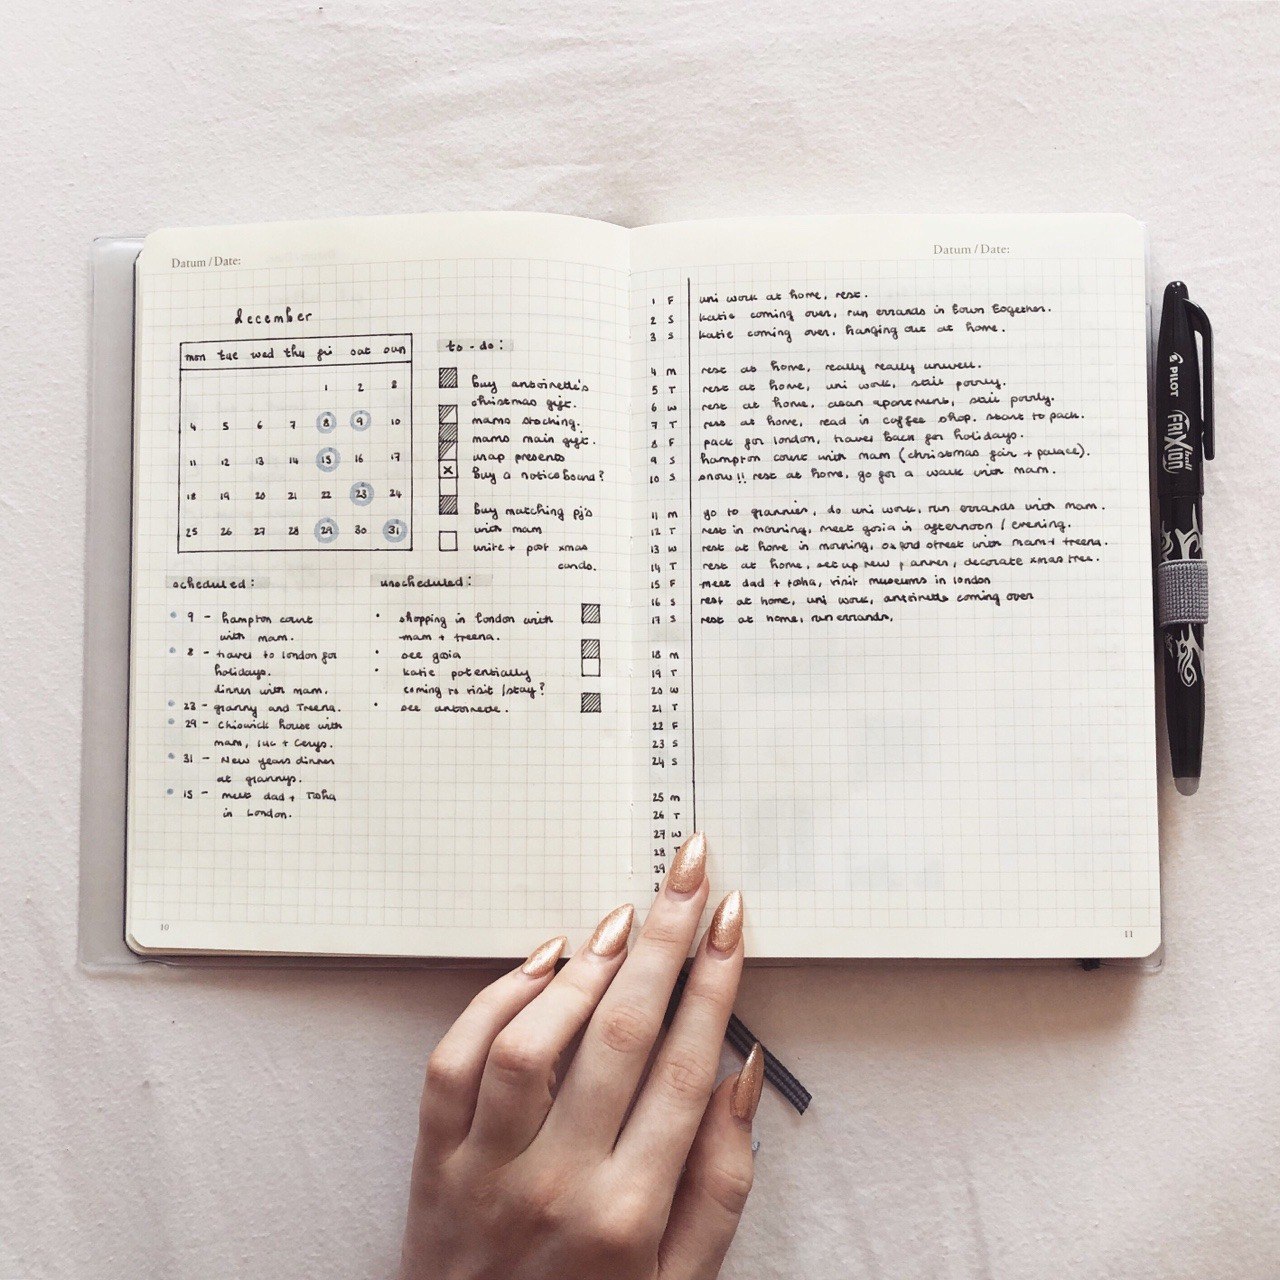 Datum / Date:
december
mon tue wed thu fri sat sun
1 2 3
4 5 6 7 8 9 10
11 12 13 14 15 16 17
18 19 20 21 22 23 24
25 26 27 28 29 30 31
to-do:
buy antoinette's
christmas gift.
mams stocking.
mams main gift.
wrap presents
buy a notice board?
buy matching pj's
with mam
write + post xmas
cards.
scheduled:
9 - hampton court
with mam.
8 - travel to london for
holidays.
dinner with mam.
23 - granny and Treena.
29 - Chiswick house with
mam, luc + Cerys.
31 - New years dinner
at grannys.
15 - meet dad + Tosha
in London.
unscheduled:
• shopping in london with
mam + treena.
• see gosia
• katie potentially
coming to visit / stay?
• see antoinette.
10
Datum / Date:
1 F uni work at home, rest.
2 S katie coming over, run errands in town together.
3 S katie coming over. hanging out at home.
4 M rest at home, really really unwell.
5 T rest at home, uni work, still poorly.
6 W rest at home, clean apartment, still poorly.
7 T rest at home, read in coffee shop. start to pack.
8 F pack for london, travel back for holidays.
9 S hampton court with mam (christmas fair + palace).
10 S snow!! rest at home, go for a walk with mam.
11 M go to grannies, do uni work, run errands with mam.
12 T rest in morning, meet gosia in afternoon / evening.
13 W rest at home in morning, oxford street with mam + treena.
14 T rest at home, set up new planner, decorate xmas tree.
15 F meet dad + tosha, visit museums in london
16 S rest at home, uni work, antoinette coming over
17 S rest at home, run errands.
18 M
19 T
20 W
21 T
22 F
23 S
24 S
25 M
26 T
27 W
28 T
29
3
11
PILOT
FRIXion
ball